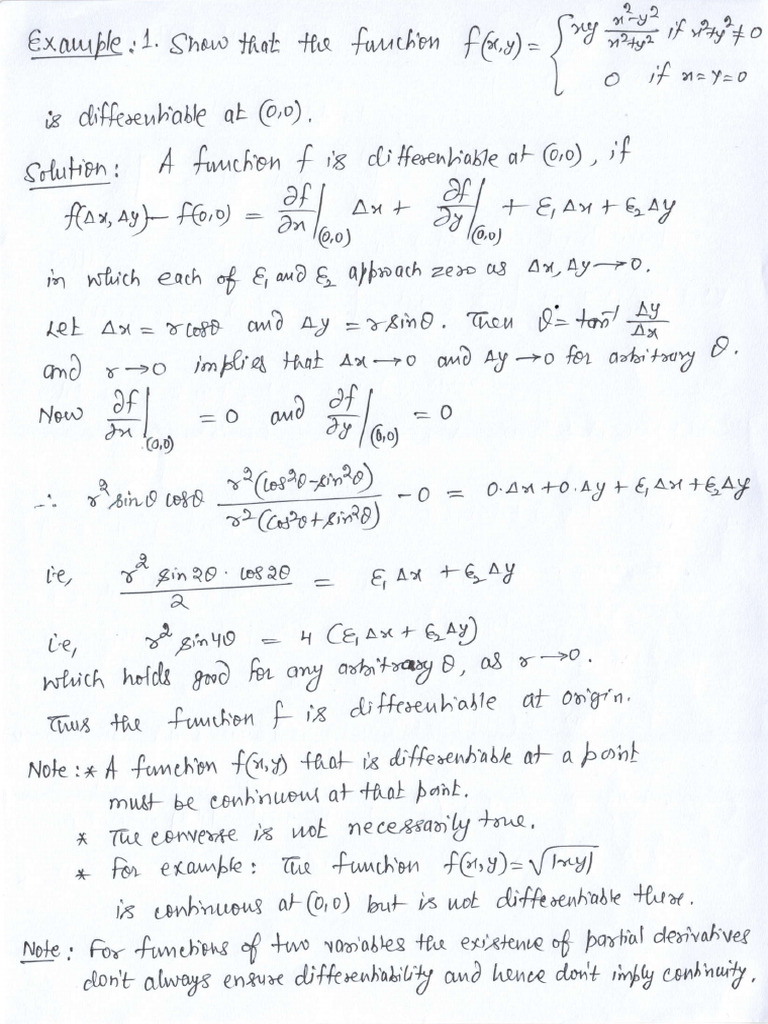 Example: 1. Show that the function f(x,y) = { xy (x²-y²)/(x²+y²) if x²+y² ≠ 0
0 if x=y=0
is differentiable at (0,0).
Solution: A function f is differentiable at (0,0), if
f(Δx, Δy) - f(0,0) = ∂f/∂x|(0,0) Δx + ∂f/∂y|(0,0) + ε₁Δx + ε₂Δy
in which each of ε₁ and ε₂ approach zero as Δx, Δy → 0.
Let Δx = r cosθ and Δy = r sinθ. Then θ = tan⁻¹ Δy/Δx
and r → 0 implies that Δx → 0 and Δy → 0 for arbitrary θ.
Now ∂f/∂x|(0,0) = 0 and ∂f/∂y|(0,0) = 0
∴ r² sinθ cosθ r²(cos²θ - sin²θ)/r²(cos²θ + sin²θ) - 0 = 0.Δx + 0.Δy + ε₁Δx + ε₂Δy
i.e, r² sin2θ · cos2θ / 2 = ε₁Δx + ε₂Δy
i.e, r² sin4θ = 4 (ε₁Δx + ε₂Δy)
which holds good for any arbitrary θ, as r → 0.
Thus the function f is differentiable at origin.
Note: * A function f(x,y) that is differentiable at a point
must be continuous at that point.
* The converse is not necessarily true.
* For example: The function f(x,y) = √|xy|
is continuous at (0,0) but is not differentiable there.
Note: For functions of two variables the existence of partial derivatives
don't always ensure differentiability and hence don't imply continuity.